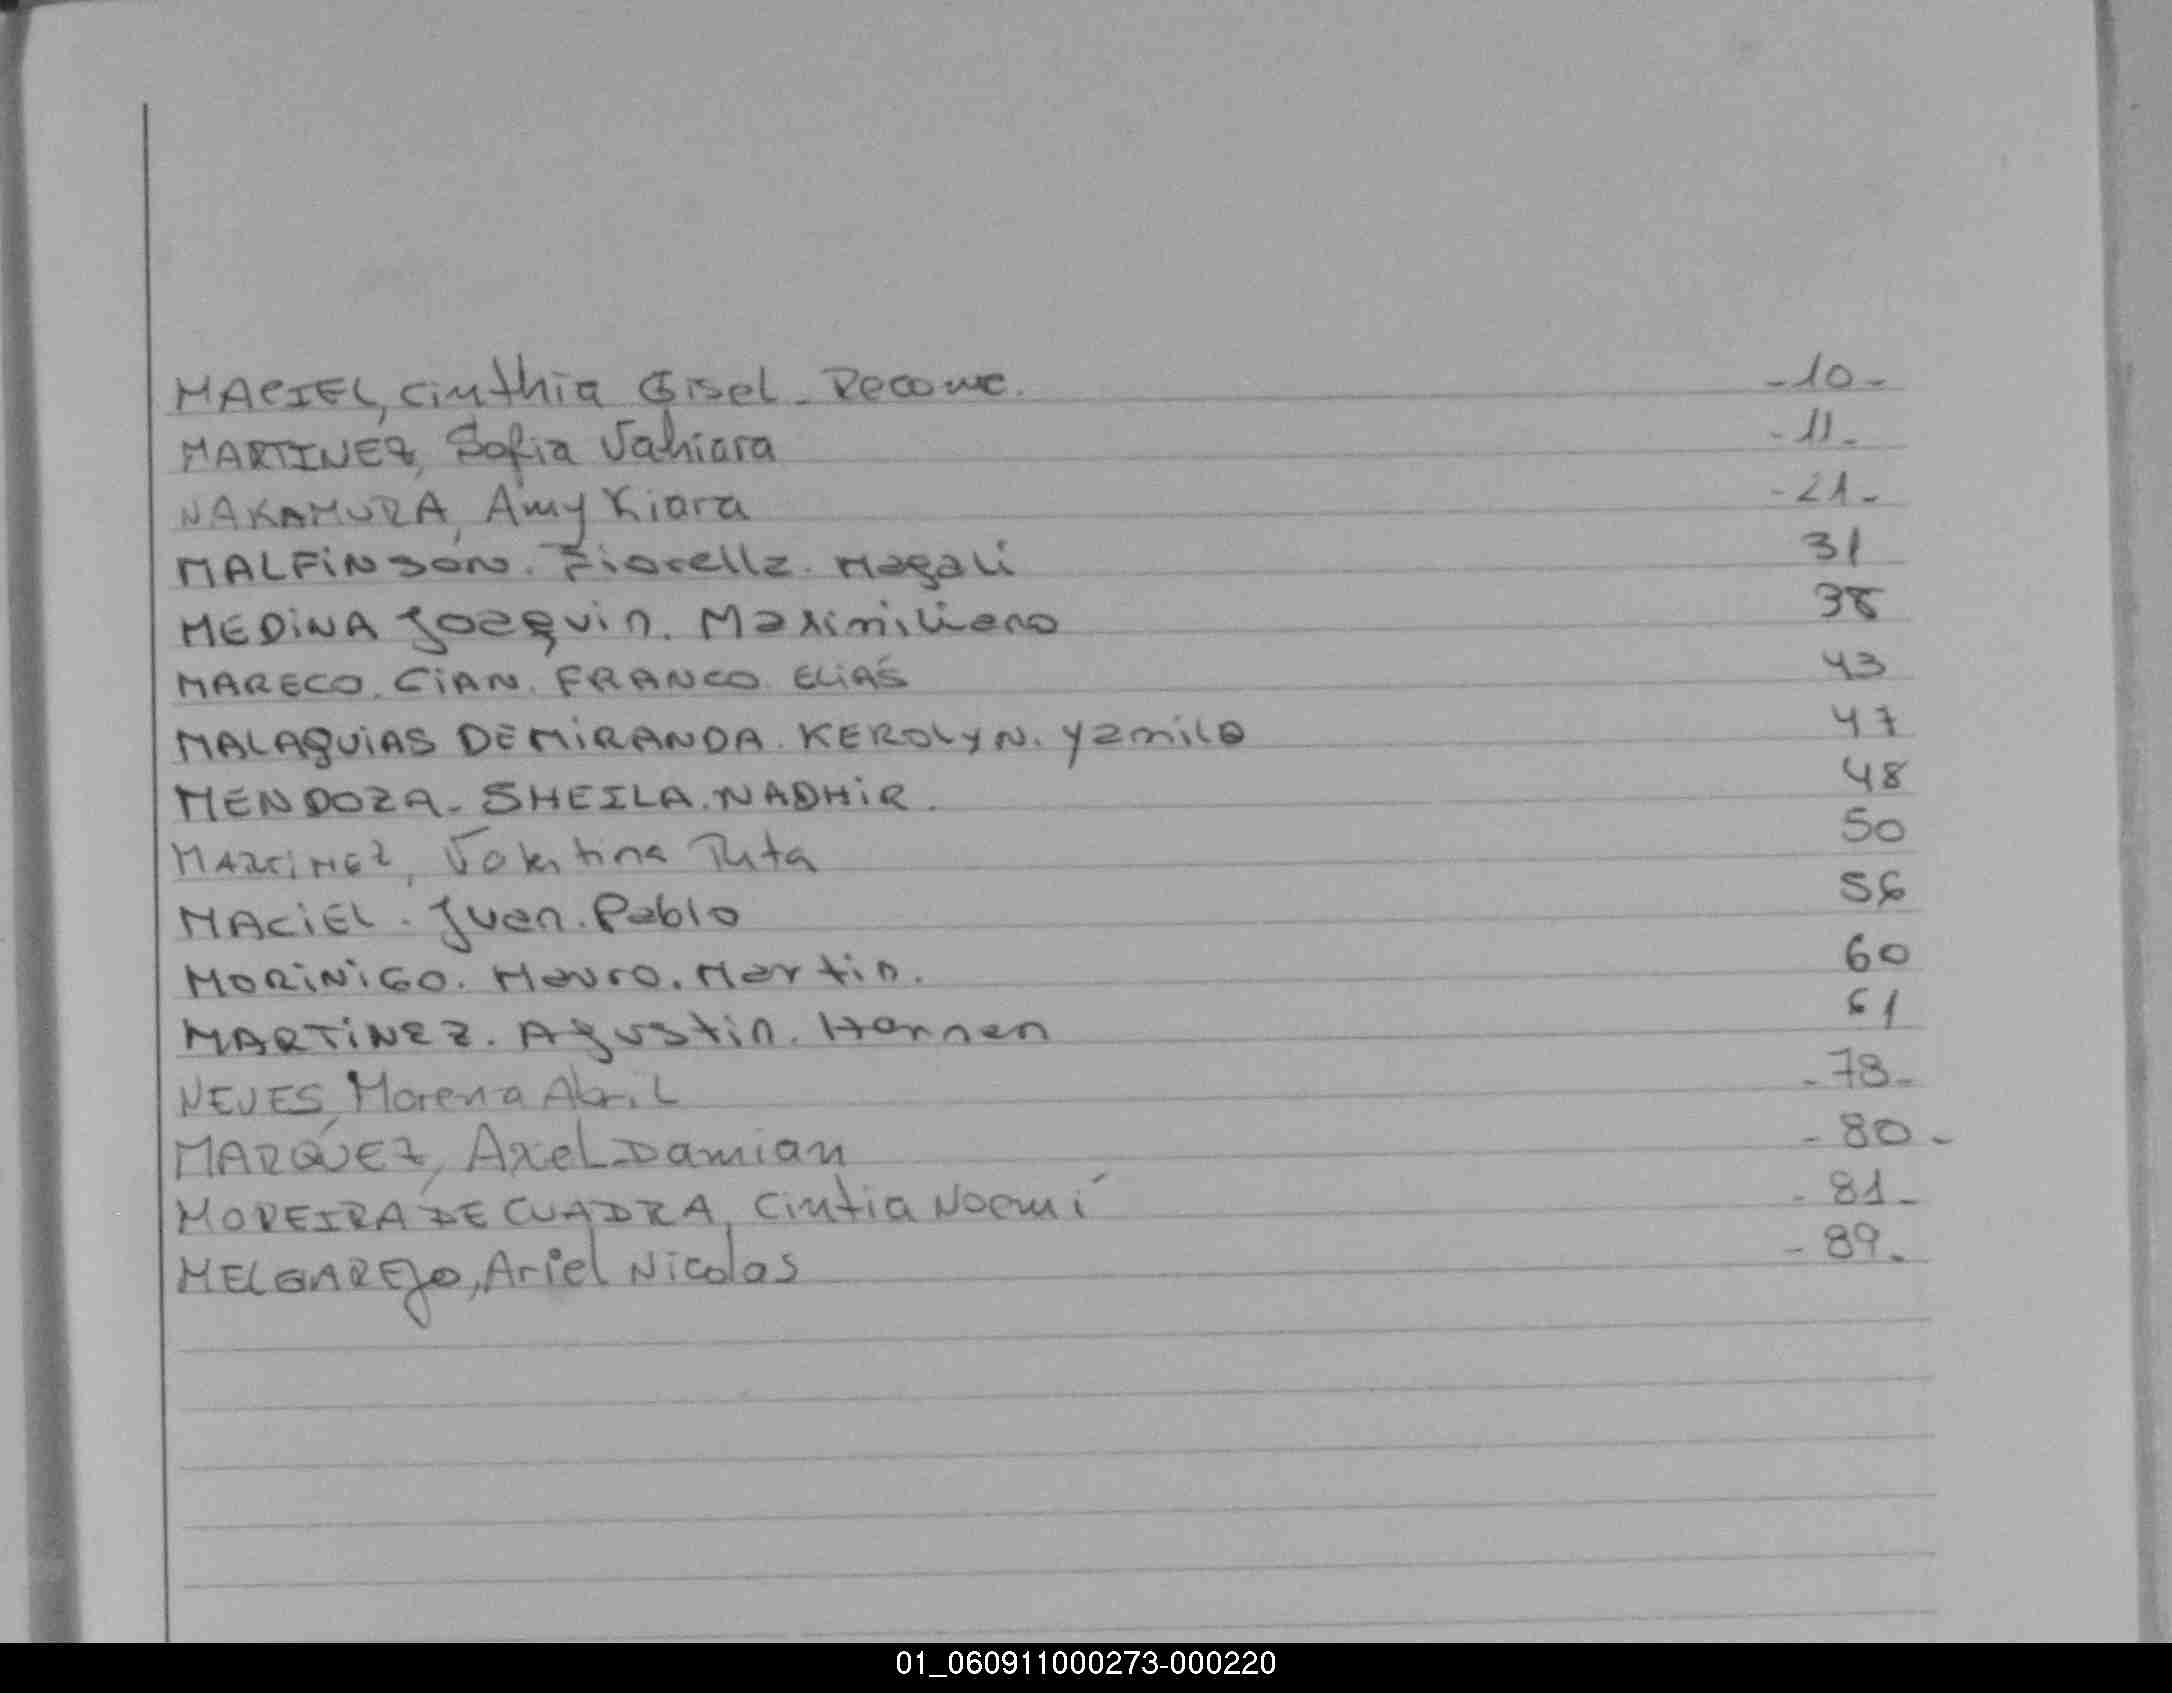 MACIEL, Cinthia Gisel - Reconoc. -10-
MARTINEZ, Sofia Vahiara -11-
NAKAMURA, Amy Kiara -21-
MALFINSON. Fiorella. Magali 31
MEDINA Joaquin. Maximiliano 38
MARECO. GIAN. FRANCO. ELIAS 43
MALAQUIAS DEMIRANDA. KEROLYN. Yamila 47
MENDOZA - SHEILA. NADHIR. 48
MARTINEZ, Valentina 50
MACIEL. Juan. Pablo 56
MORINIGO. Mauro. Martin. 60
MARTINEZ. Agustin. Hernan 61
NEVES, Morena Abril -78-
MARQUEZ, Axel Damian -80-
MOREIRA DE CUADRA, Cintia Noemí -81-
MELGAREJO, Ariel Nicolas -89-
01_060911000273-000220